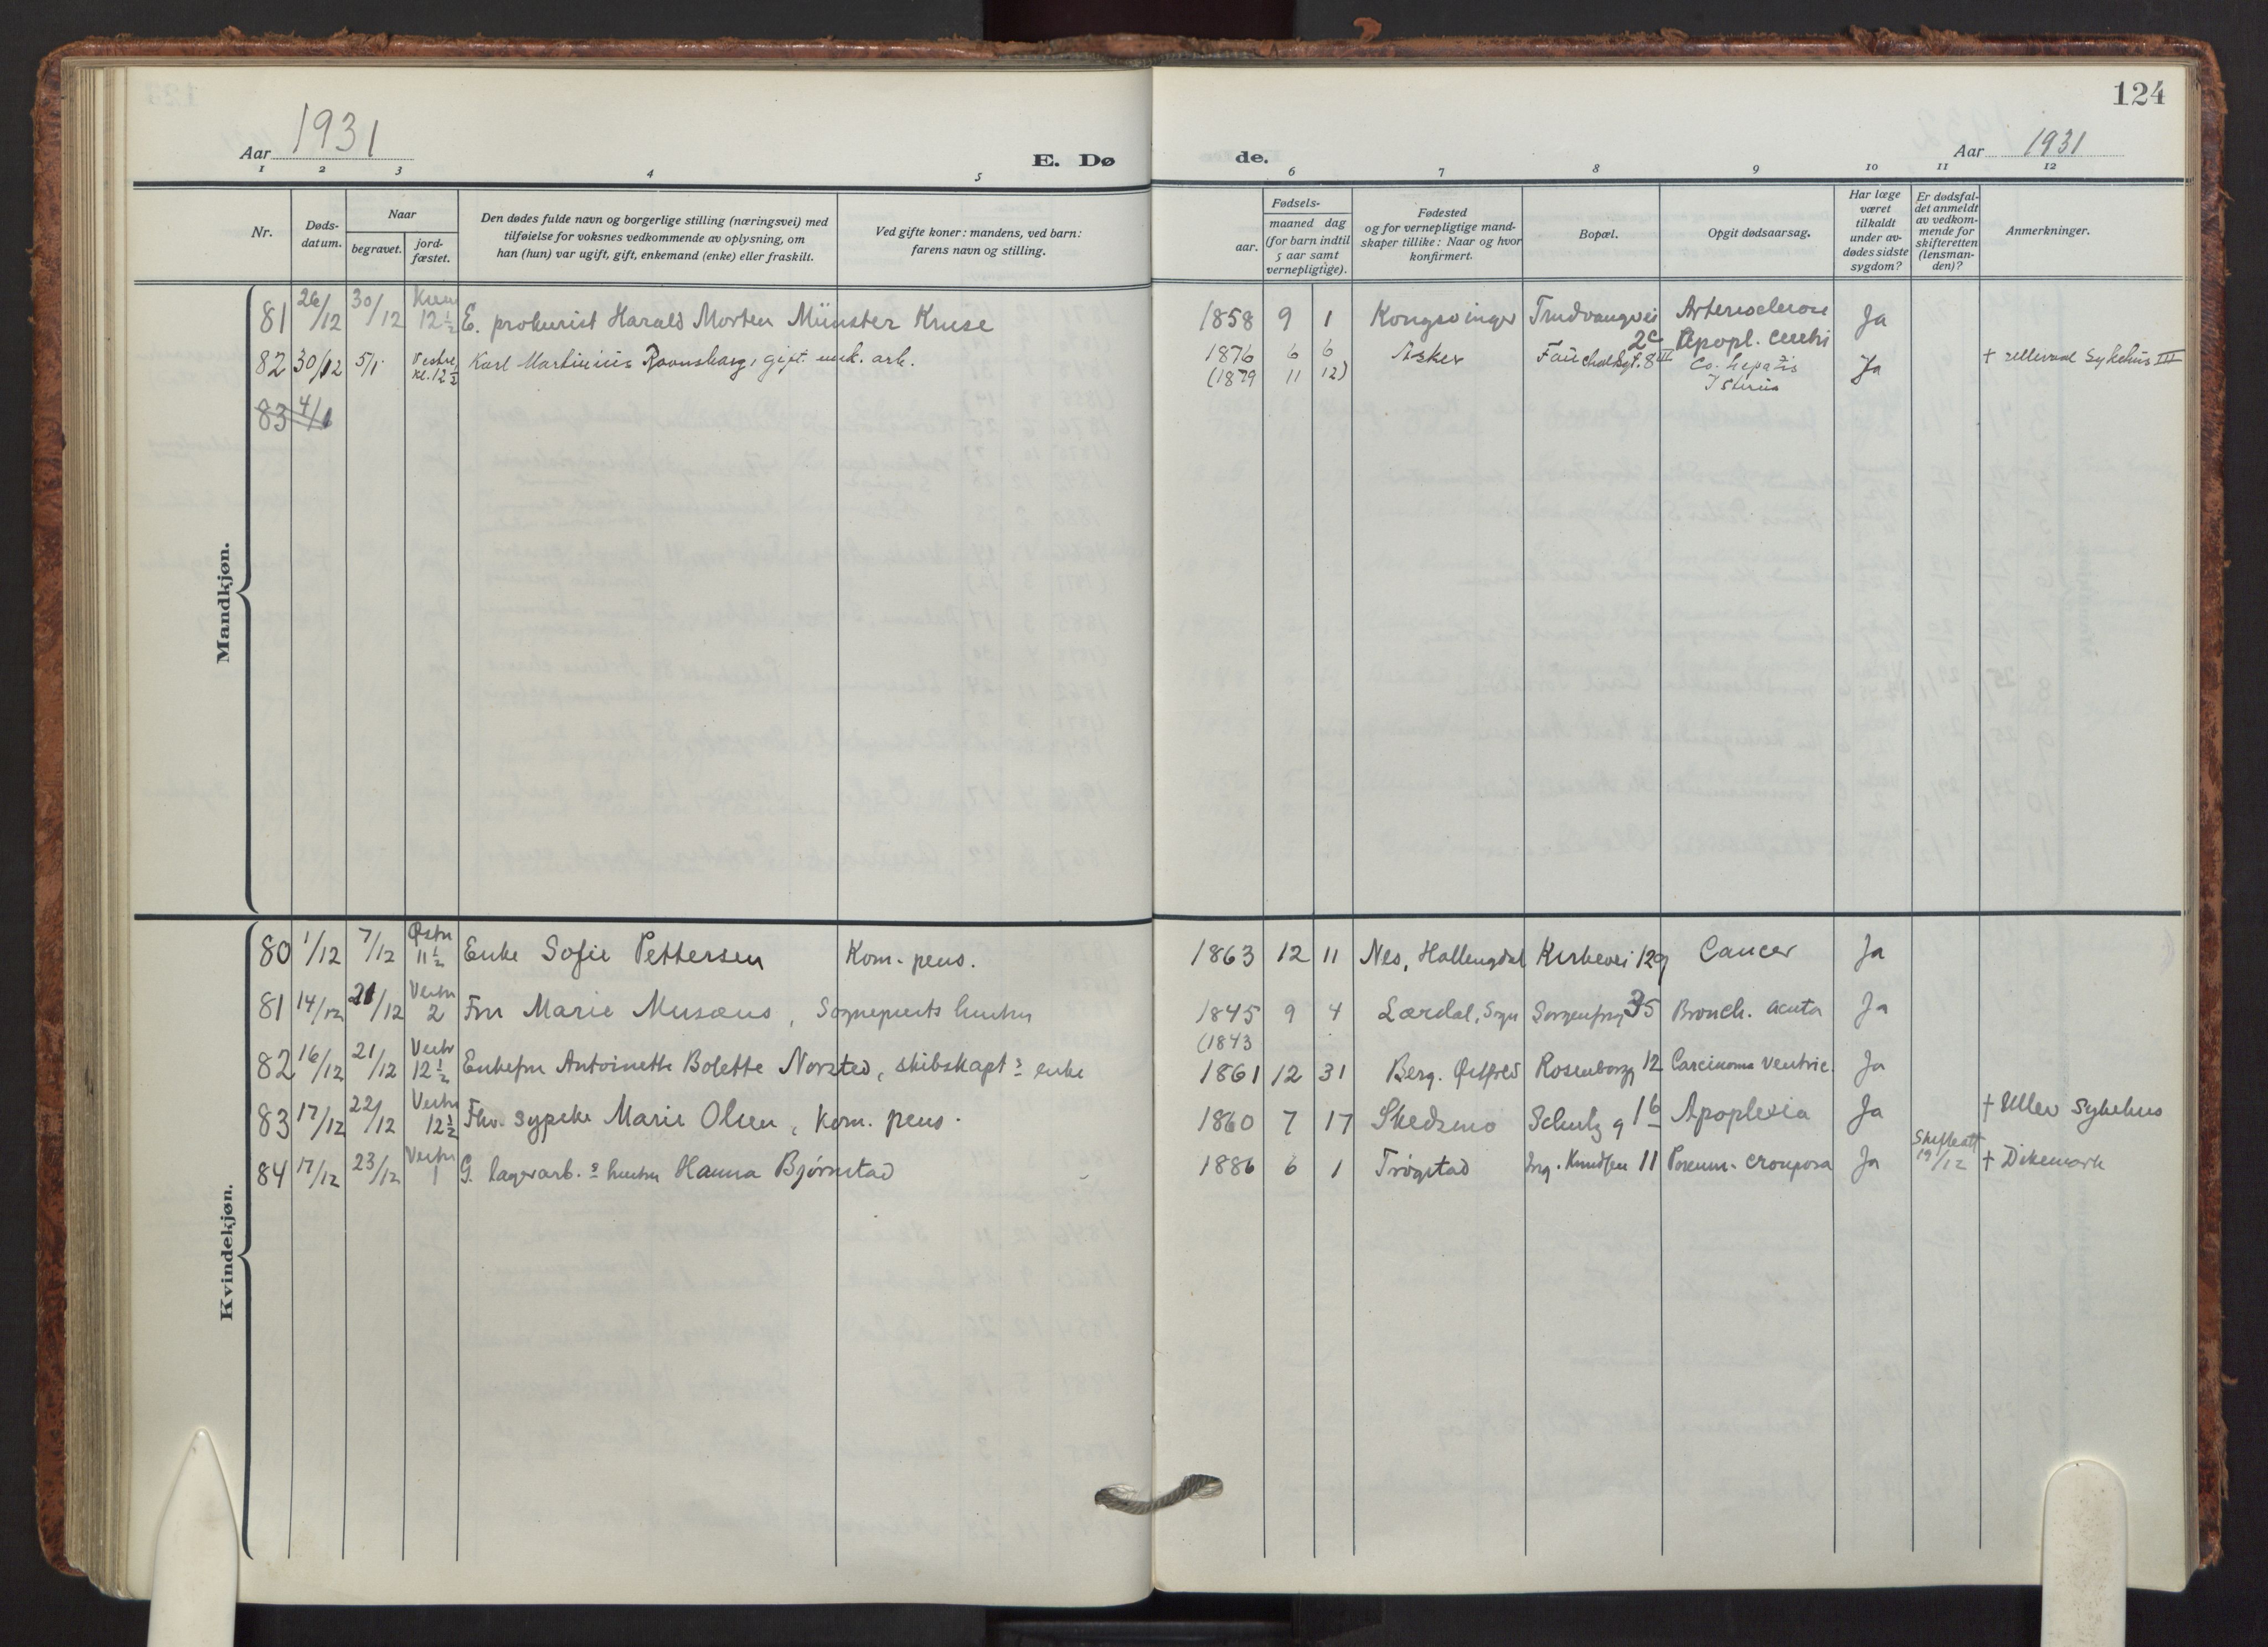 124
Aar 1931
E. Dø de.
Aar 1931
1 2 3 4 5 6 7 8 9 10 11 12
Nr.
Døds-
datum.
Naar
begravet.
jord-
fæstet.
Den dødes fulde navn og borgerlige stilling (næringsvei) med
tilføielse for voksnes vedkommende av oplysning, om
han (hun) var ugift, gift, enkemand (enke) eller fraskilt.
Ved gifte koner: mandens, ved barn:
farens navn og stilling.
Fødsels-
aar.
maaned dag
(for barn indtil
5 aar samt
vernepligtige).
Fødested
og for vernepligtige mand-
skaper tillike: Naar og hvor
konfirmert.
Bopæl.
Opgit dødsaarsag.
Har læge
været
tilkaldt
under av-
dødes sidste
sygdom?
Er dødsfal-
det anmeldt
av vedkom-
mende for
skifteretten
(lensman-
den)?
Anmerkninger.
Mandkjøn.
81 26/12 30/12 Krem 12½ E. prokurist Harald Morten Münster Kruse 1858 9 1 Kongsvinger Trudvangvei 2c Arteriosclerose Apopl. cerebri Ja
82 30/12 5/1 Vestre kl. 12½ Karl Martinius Ravnsborg, gift. unk. arb. 1876 6 6 Asker Fauchaldsgt. 8 III Co. hepatis Ja † Ullevaal Sykehus III
(1879 11 12) Isterus
83 4/1
Kvindekjøn.
80 1/12 7/12 Østre 11½ Enke Sofie Pettersen Kom. pens. 1863 12 11 Nes, Hallengdal Kirkevei 129 Cancer Ja
81 14/12 21/12 Vestre 2 Fru Marie Musæus, Sogneprests hustru 1845 9 4 Lærdal, Sogn Sorgenfrig 35 Bronch. acuta Ja
(1843
82 16/12 21/12 Vestr 12½ Enkefru Antoinette Bolette Norsted, skibskapt s enke 1861 12 31 Berg. Østfold Rosenborgg 12 Carcinoma ventric. Ja
83 17/12 22/12 Vestre 12½ Fhv. sypike Marie Olsen, kom. pens. 1860 7 17 Skedsmo Schultz g 16 Apoplexia Ja † Ullev Sykehus
84 17/12 23/12 Vestre 1 G. lagerarb. s hustru Hanna Bjørnstad 1886 6 1 Trøgstad Jørg. Knudsen 11 Pneum. crouposa Ja Skifterett 19/12 † Dikemark